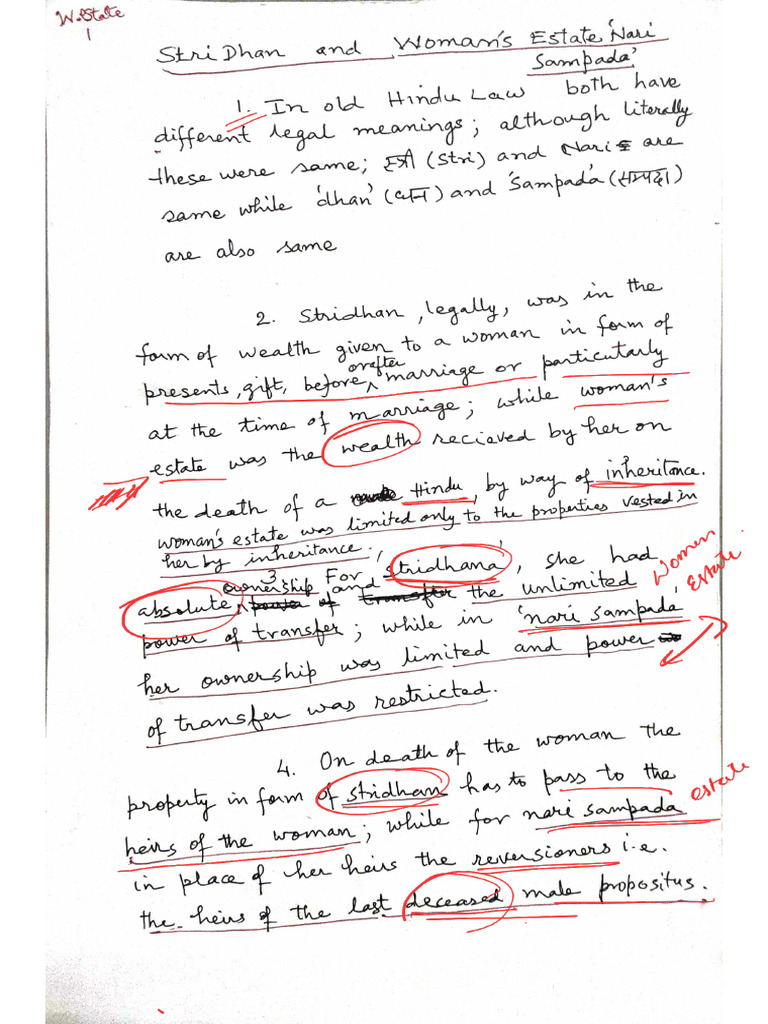 W. Estate
1
Stri Dhan and Woman's Estate 'Nari
Sampada'
1. In old Hindu Law both have
different legal meanings; although literally
these were same; स्त्री (Stri) and Nari are
same while 'dhan' (धन) and 'Sampada' (सम्पदा)
are also same
2. Stridhan, legally, was in the
form of wealth given to a woman in form of
presents, gift, before or after marriage or particularly
at the time of marriage; while woman's
estate was the wealth recieved by her on
the death of a Hindu, by way of inheritance.
woman's estate was limited only to the properties vested in
her by inheritance.
3 For 'stridhana', she had
absolute ownership and the unlimited
power of transfer; while in 'nari sampada'
Women
Estate
her ownership was limited and power
of transfer was restricted.
4. On death of the woman the
property in form of stridhan has to pass to the
heirs of the woman; while for nari sampada
estate
in place of her heirs the reversioners i.e.
the heirs of the last deceased male propositus.